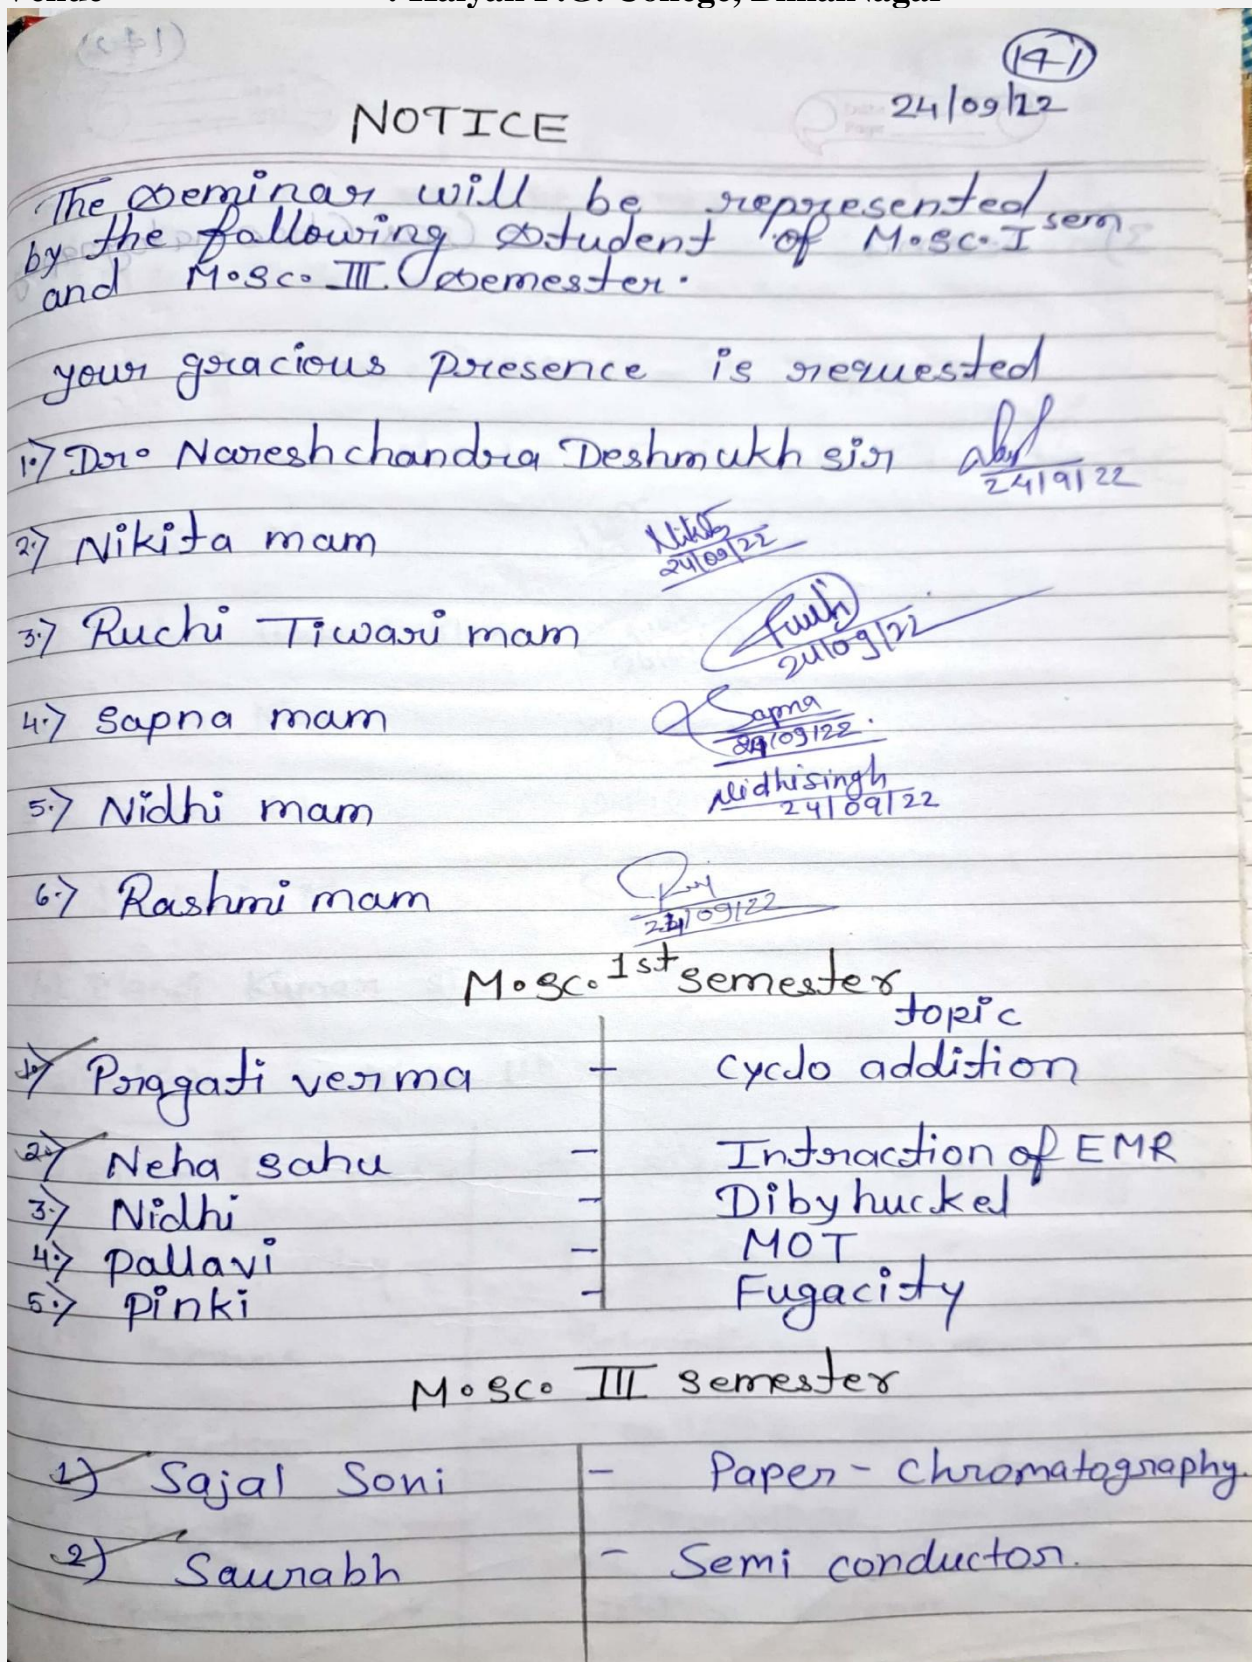 24/09/22
NOTICE
The seminar will be represented
by the fallowing student of M.Sc. I sem
and M.Sc. III semester.
your gracious presence is requested
1.) Dr. Nareshchandra Deshmukh sir
24/9/22
2.) Nikita mam Nikita
24/09/22
3.) Ruchi Tiwari mam Ruchi
24/09/22
4.) Sapna mam Sapna
24/09/22.
5.) Nidhi mam Nidhisingh
24/09/22
6.) Rashmi mam
24/09/22
M.Sc. 1st semester
topic
1.) Pragati verma - cyclo addition
2.) Neha sahu - Intraction of EMR
3.) Nidhi - Dibyhuckel
4.) pallavi - MOT
5.) pinki - Fugacity
M.Sc. III semester
1) Sajal Soni - Paper - Chromatography.
2) Saurabh - Semi conductor.